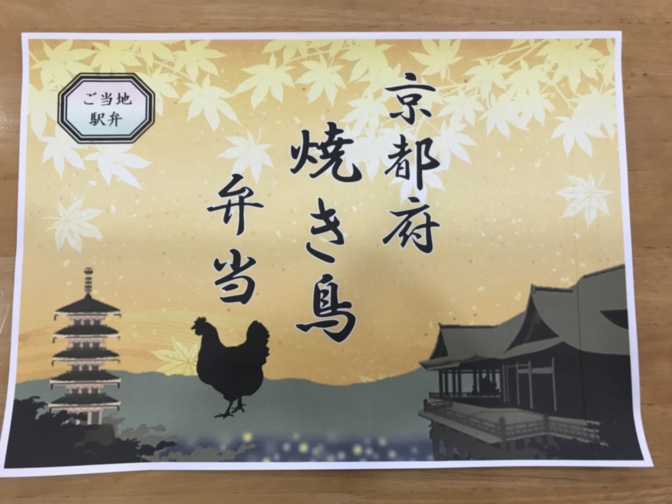 京都府
焼き鳥
弁当
ご当地
駅弁